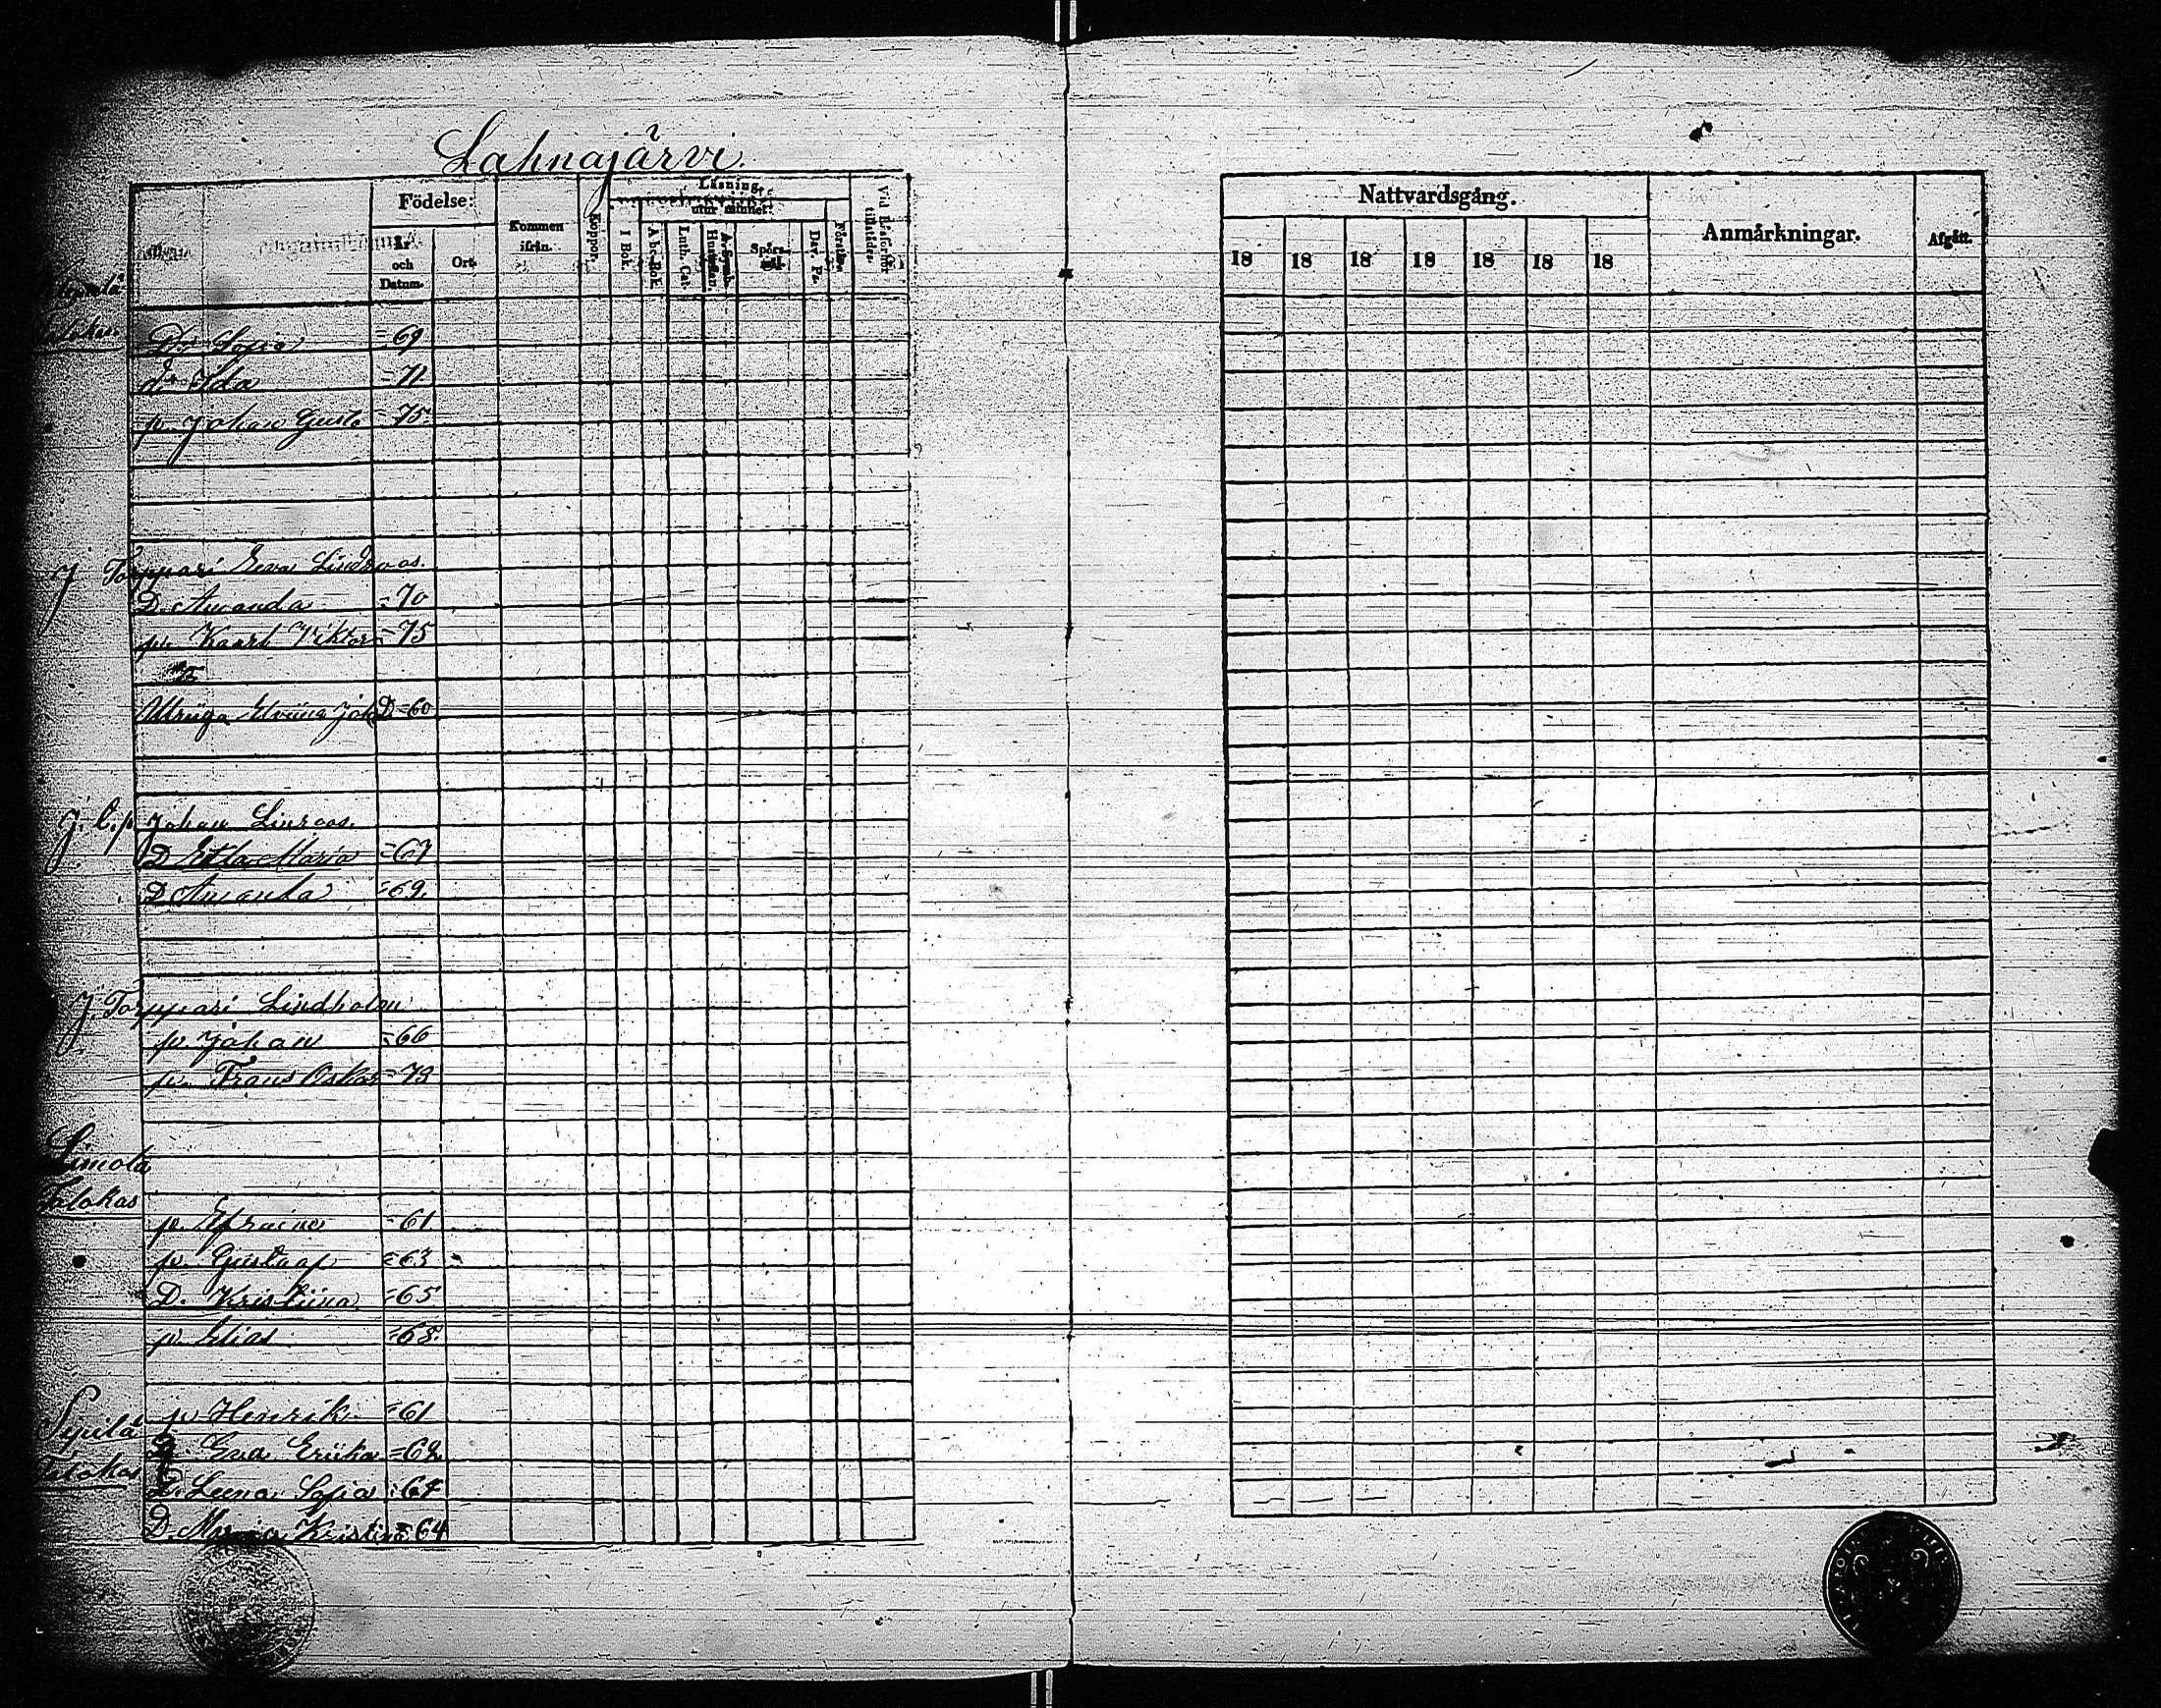 Lahnajärvi.
Födelse: Läsning, Nattvardsgång.
År och Datum. Ort. Kommen ifrån. Koppor. I Bok. utur minnet: A b c-Bok. Luth. Cat. Hustaflan. A. Symb. Spörs-mål. Dav. Ps. Förstånd. Anmärkningar. Afgått.
18 18 18 18 18 18 18
D: Sofia =69
d: Ida =71
p. Johan Gusta =75.
J Torppari Eeva Lindroos.
D. Amanda =70
p. Kaarl Viktor =75
Elviina Joh D =60
J. l. p Johan Linroos.
D Etla Maria =67
D Amanda =69.
J Torppari Lindholm
p. Johan =66
p. Frans Oskar =73
Simola
Talokas
p. Efraim =61
p. Gustaaf =63
D. Kristiina =65
p. Elias =68.
Sepilä p Henrik =61
D. Eva Eriika =62
Talokas D. Leena Sofia =64
D. Maria Kristina =64